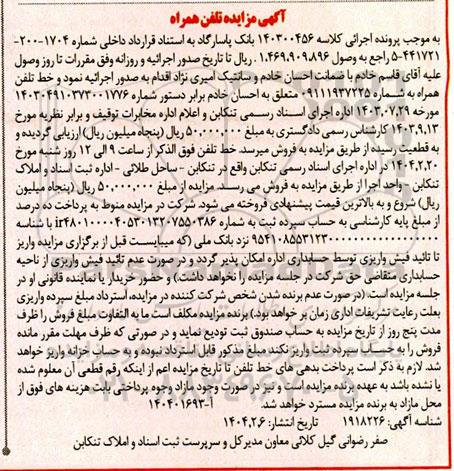 آگهی مزایده تلفن همراه
به موجب پرونده اجرائی کلاسه ۱۴۰۳۰۰۴۵۶ بانک پاسارگاد به استناد قرارداد داخلی شماره ۱۷۰۴-۲۰۰-
۵-۴۴۱۷۲۱ راجع به وصول ۱.۴۶۹.۹۰۹.۸۹۶ ریال تا تاریخ صدور اجرائیه و روزانه وفق مقررات تا روز وصول
علیه آقای قاسم خادم با ضمانت احسان خادم و سانتیک امیری نژاد اقدام به صدور اجرائیه نمود و خط تلفن
همراه به شماره ۰۹۱۱۱۹۳۷۲۲۵ متعلق به احسان خادم برابر دستور شماره ۱۴۰۳۰۴۹۱۰۳۷۳۰۰۱۷۷۶
مورخه ۱۴۰۳.۰۷.۲۹ اداره اجرای اسناد رسمی تنکابن و اعلام اداره مخابرات توقیف و برابر نظریه مورخ
۱۴۰۳.۹.۱۳ کارشناس رسمی دادگستری به مبلغ ۵۰.۰۰۰.۰۰۰ ریال (پنجاه میلیون ریال) ارزیابی گردیده و
به قطعیت رسیده از طریق مزایده به فروش میرسد. خط تلفن فوق الذکر از ساعت ۹ الی ۱۲ روز شنبه مورخ
۱۴۰۴.۲.۲۰ در اداره اجرای اسناد رسمی تنکابن واقع در تنکابن - ساحل طلائی - اداره ثبت اسناد و املاک
تنکابن - واحد اجرا از طریق مزایده به فروش می رسد. مزایده از مبلغ ۵۰.۰۰۰.۰۰۰ ریال (پنجاه میلیون
ریال) شروع و به بالاترین قیمت پیشنهادی فروخته می شود. شرکت در مزایده منوط به پرداخت ده درصد
از مبلغ پایه کارشناسی به حساب سپرده ثبت به شماره ir۴۸۰۱۰۰۰۰۴۰۵۳۰۱۳۲۰۷۵۵۰۳۸۶ با شناسه
۹۵۴۱۰۸۵۵۳۱۲۳۰۰۰۰۰۰۰۰۰۰۰۰۰۰۰۰۰ نزد بانک ملی (که میبایست قبل از برگزاری مزایده واریز
تا تائید فیش واریزی توسط حسابداری اداره امکان پذیر گردد و در صورت عدم تائید فیش واریزی از ناحیه
حسابداری متقاضی حق شرکت در جلسه مزایده را نخواهد داشت.) و حضور خریدار یا نماینده قانونی او در
جلسه مزایده است. (در صورت عدم برنده شدن شخص شرکت کننده در مزایده، استرداد مبلغ سپرده واریزی
بعلت رعایت تشریفات اداری زمان بر خواهد بود.) برنده مزایده مکلف است ما به التفاوت مبلغ فروش را ظرف
مدت پنج روز از تاریخ مزایده به حساب صندوق ثبت تودیع نماید و در صورتی که ظرف مهلت مقرر مانده
فروش را به حساب سپرده ثبت واریز نکند مبلغ مذکور قابل استرداد نبوده و به حساب خزانه واریز خواهد
شد. لازم به ذکر است پرداخت بدهی های خط تلفن تا تاریخ مزایده اعم از اینکه رقم قطعی آن معلوم شده
یا نشده باشد به عهده برنده مزایده است و نیز در صورت وجود مازاد وجوه پرداختی بابت هزینه های فوق از
محل مازاد به برنده مزایده مسترد خواهد شد. آ-۱۴۰۴۰۱۶۹۳
شناسه آگهی: ۱۹۱۸۲۲۶ تاریخ انتشار: ۱۴۰۴.۲.۶
صفر رضوانی گیل کلائی معاون مدیر کل و سرپرست ثبت اسناد و املاک تنکابن